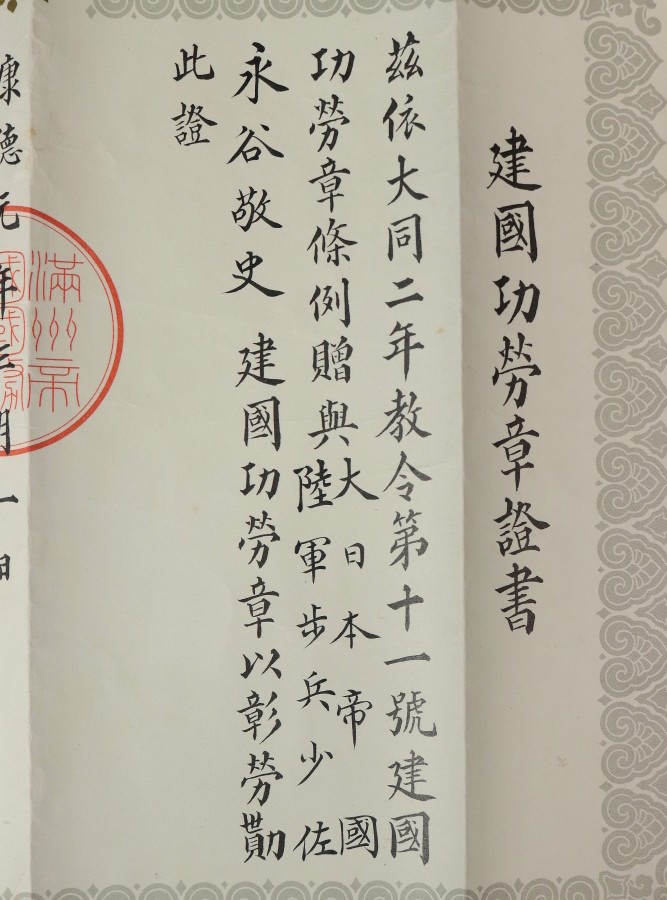 建國功勞章證書
茲依大同二年教令第十一號建國
功勞章條例贈與
大日本帝國
陸軍步兵少佐
永谷敬史 建國功勞章以彰勞勩
此證
康德元年三月一日
滿州帝
國國務